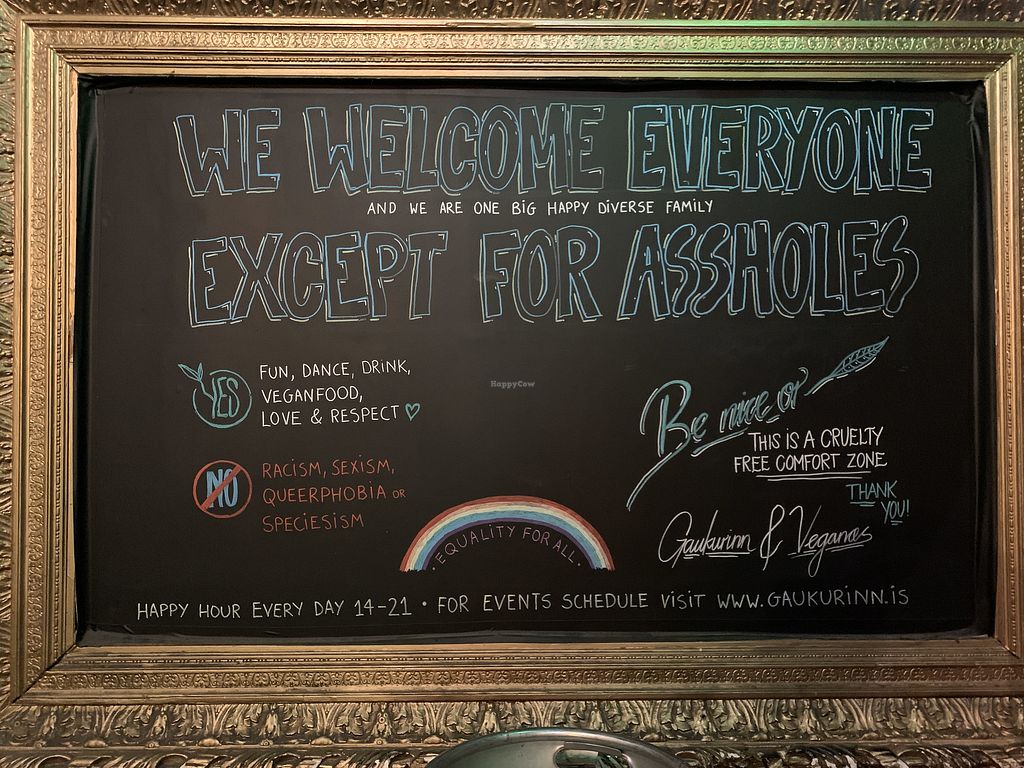 WE WELCOME EVERYONE
AND WE ARE ONE BIG HAPPY DIVERSE FAMILY
EXCEPT FOR ASSHOLES
YES
FUN, DANCE, DRINK,
VEGANFOOD,
LOVE & RESPECT
HappyCow
NO
RACISM, SEXISM,
QUEERPHOBIA OR
SPECIESISM
Be nice or
THIS IS A CRUELTY
FREE COMFORT ZONE
THANK
YOU!
Gaukurinn & Veganæs
EQUALITY FOR ALL
HAPPY HOUR EVERY DAY 14-21 • FOR EVENTS SCHEDULE VISIT WWW.GAUKURINN.IS